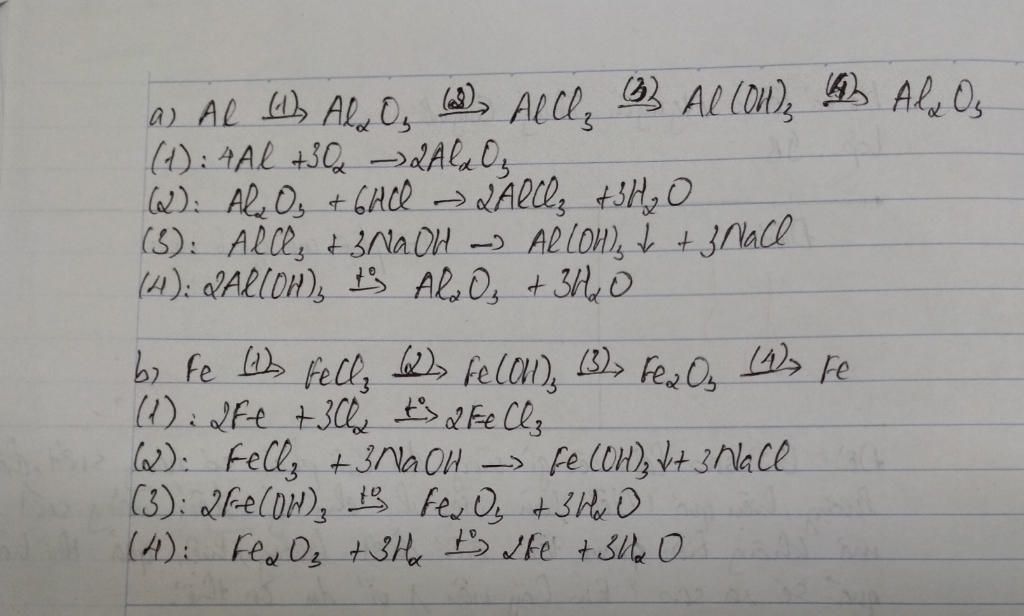 a) Al (1)→ Al₂O₃ (2)→ AlCl₃ (3)→ Al(OH)₃ (4)→ Al₂O₃
(1): 4Al + 3O₂ → 2Al₂O₃
(2): Al₂O₃ + 6HCl → 2AlCl₃ + 3H₂O
(3): AlCl₃ + 3NaOH → Al(OH)₃↓ + 3NaCl
(4): 2Al(OH)₃ t°→ Al₂O₃ + 3H₂O
b) Fe (1)→ FeCl₃ (2)→ Fe(OH)₃ (3)→ Fe₂O₃ (4)→ Fe
(1): 2Fe + 3Cl₂ t°→ 2FeCl₃
(2): FeCl₃ + 3NaOH → Fe(OH)₃↓ + 3NaCl
(3): 2Fe(OH)₃ t°→ Fe₂O₃ + 3H₂O
(4): Fe₂O₃ + 3H₂ t°→ 2Fe + 3H₂O